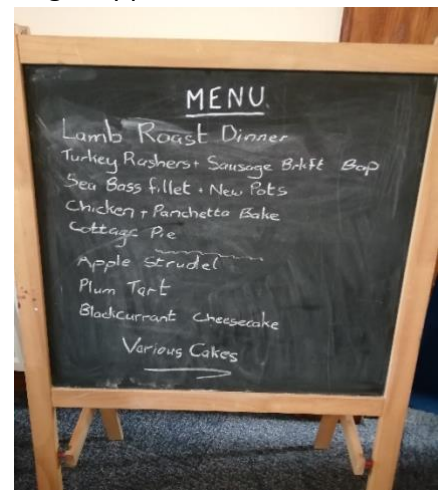 MENU.
Lamb Roast Dinner
Turkey Rashers + Sausage Brkft Bap
Sea Bass fillet + New Pots
Chicken + Panchetta Bake
Cottage Pie
Apple Strudel
Plum Tart
Blackcurrant Cheesecake
Various Cakes